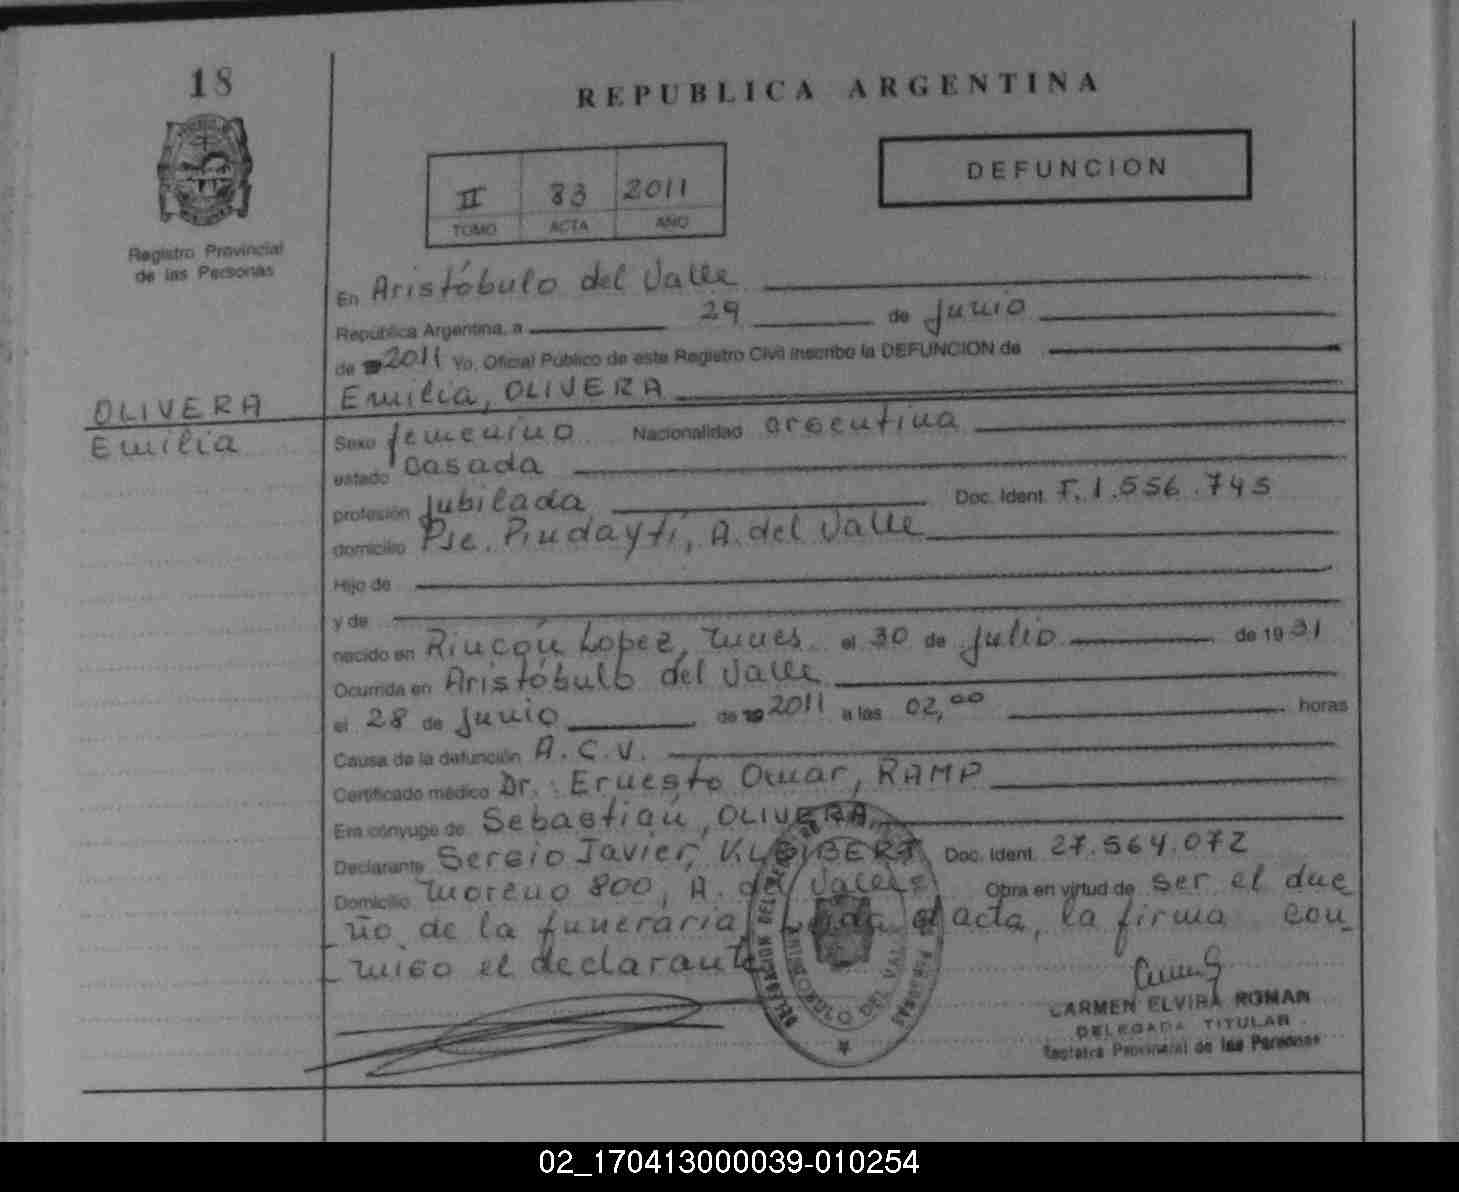 18
REPUBLICA ARGENTINA
DEFUNCION
II 83 2011
TOMO ACTA AÑO
Registro Provincial
de las Personas
En Aristóbulo del Valle
República Argentina, a 29 de junio
de 2011 Yo, Oficial Público de este Registro Civil inscribo la DEFUNCION de
OLIVERA
Emilia
Emilia, OLIVERA
Sexo femenino Nacionalidad argentina
estado casada
profesión jubilada Doc. Ident. F. 1.556.745
domicilio Pje. Pindaytí, A. del Valle
Hijo de
y de
nacido en Rincón Lopez, Mnes. el 30 de julio de 1931
Ocurrida en Aristóbulo del Valle
el 28 de junio de 2011 a las 02,00 horas
Causa de la defunción A.C.V.
Certificado médico Dr.: Ernesto Omar, RAMP
Era cónyuge de Sebastián, OLIVERA
Declarante Sergio Javier, Doc. Ident. 27.564.072
Domicilio Moreno 800, A. del Valle Obra en virtud de ser el due
ño de la funeraria, Leída el acta, la firma con-
migo el declarante
DELEGACION DEL
ARISTOBULO DEL VALLE
CARMEN ELVIRA ROMAN
DELEGADA TITULAR
Registro Provincial de las Personas
02_170413000039-010254